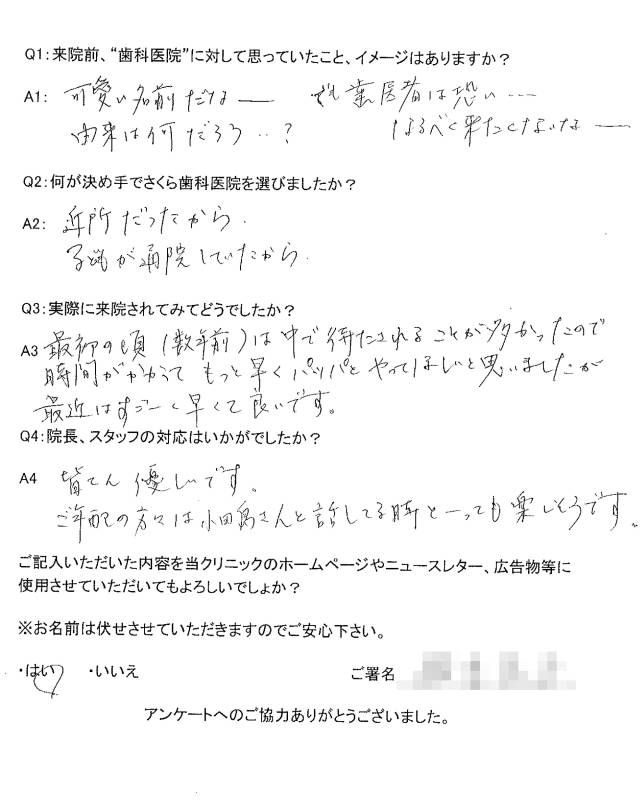 Q1：来院前、“歯科医院”に対して思っていたこと、イメージはありますか？
A1： 可愛い名前だなー でも歯医者は恐い…
由来は何だろう‥？ なるべく来たくないなー
Q2：何が決め手でさくら歯科医院を選びましたか？
A2： 近所だったから．
子どもが通院していたから．
Q3：実際に来院されてみてどうでしたか？
A3 最初の頃（数年前）は中で待たされることが多かったので
時間がかかって もっと早くパッパとやってほしいと思いましたが
最近はすごーく早くて良いです。
Q4：院長、スタッフの対応はいかがでしたか？
A4 皆さん優しいです。
ご年配の方々は小田島さんと話してる時とーっても楽しそうです。
ご記入いただいた内容を当クリニックのホームページやニュースレター、広告物等に
使用させていただいてもよろしいでしょか？
※お名前は伏せさせていただきますのでご安心下さい。
・はい ・いいえ ご署名
アンケートへのご協力ありがとうございました。